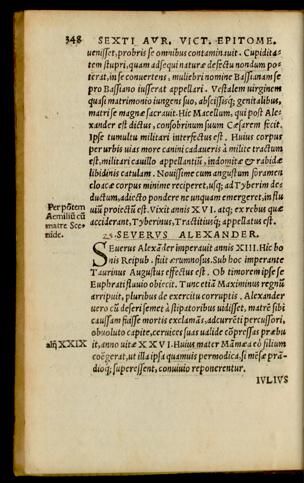 348 SEXTI AVR. VICT. EPITOME.
uenisset, probris se omnibus contaminauit. Cupidita-
tem stupri, quam adsequi naturæ defectu nondum po-
terat, in se conuertens, muliebri nomine Bassianam se
pro Bassiano iusserat appellari. Vestalem uirginem
quasi matrimonio iungens suo, abscissisq; genitalibus,
matri se magnæ sacrauit. Hic Macellum, qui post Ale-
xander est dictus, consobrinum suum Cæsarem fecit.
Ipse tumultu militari interfectus est. Huius corpus
per urbis uias more canini cadaueris à milite tractum
est, militari cauillo appellantiū, indomitæ & rabidæ
libidinis catulam. Nouissime cum angustum foramen
cloacæ corpus minime reciperet, usq; ad Tyberim de-
ductum, adiecto pondere ne unquam emergeret, in flu
Per pōtem
Aemiliū cū
matre Soe-
nide.
uiū proiectū est. Vixit annis XVI. atq; ex rebus quæ
acciderant, Tyberinus, Tractitiusq; appellatus est.
25. SEVERVS ALEXANDER.
SEuerus Alexāder imperauit annis XIII. Hic bo
nis Reipub. fuit ærumnosus. Sub hoc imperante
Taurinus Augustus effectus est. Ob timorem ipse se
Euphrati fluuio obiecit. Tunc etiā Maximinus regnū
arripuit, pluribus de exercitu corruptis. Alexander
uero cū deseri semet à stipatoribus uidisset, matrē sibi
caussam fuisse mortis exclamās, adcurrēti percussori,
obuoluto capite, ceruices suas ualide cōpressas præbu
alij XXIX
it, anno uitæ XXVI. Huius mater Māmæa eò filium
coëgerat, ut illa ipsa quamuis permodica, si mēsæ prā-
dioq; superessent, conuiuio reponerentur.
IVLIVS